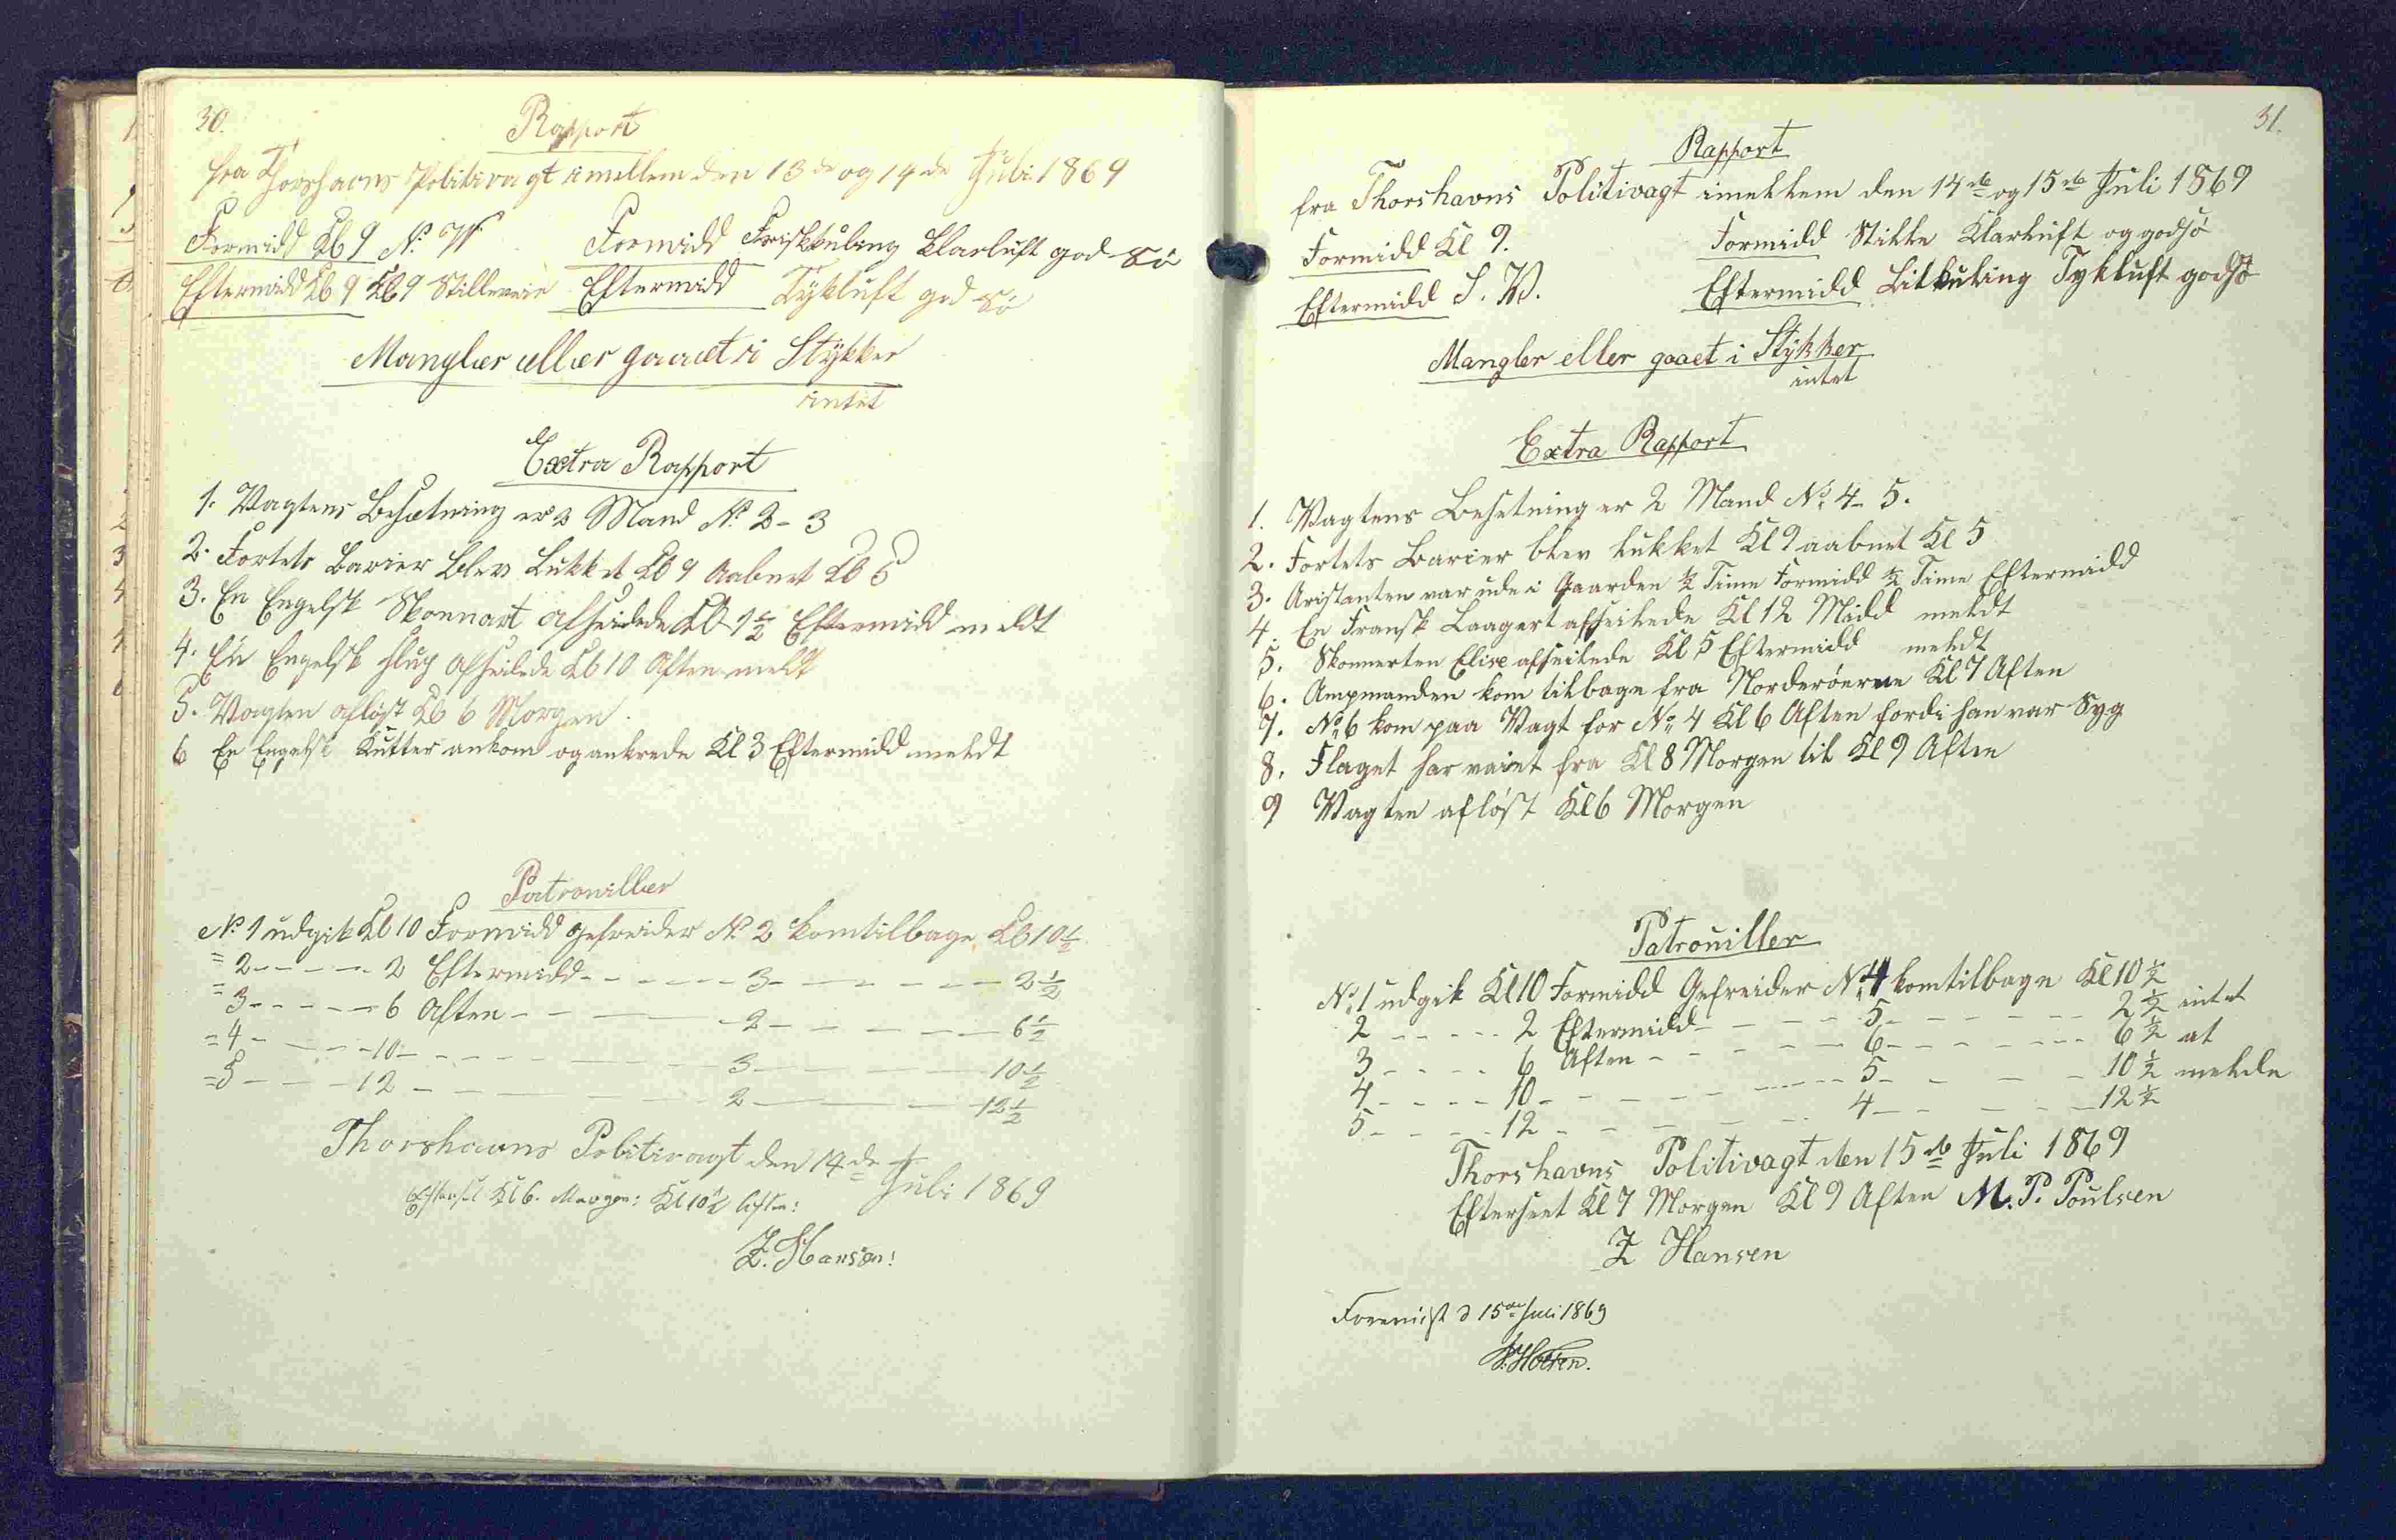 30.
Rapport
fra Thorshavns Politivagt imellem den 13de og 14de Juli 1869
Formidd Kl 9 N. W. Formidd Friskkuling Klarluft god Sö
Eftermidd Kl 9 Kl 9 Stilleveir Eftermidd Tykluft god Sö
Mangler eller gaaet i Stykker
intet
Extra Rapport
1. Vagtens Besætning er 2 Mand No 2 - 3
2. Fortets Barier blev Lukket Kl 9 Aabnet Kl 5
3. En Engelsk Skonnart afseilede Kl 1 1/2 Eftermidd meldt
4. En Engelsk Slup afseilede Kl 10 Aften meldt
5. Vagten aflöst Kl 6 Morgen.
6 En Engelsk Kutter ankom og ankrede Kl 3 Eftermidd meldt
Patrouiller
No 1 udgik Kl 10 Formidd Gefreider No 2 kom tilbage Kl 10 1/2
= 2 - - - - - 2 Eftermidd - - - - - - 3 - - - - - - 2 1/2
= 3 - - - - - 6 Aften - - - - 2 - - - - - - 6 1/2
= 4 - - - - 10 - - - - - - - 3 - - - - - 10 1/2
= 5 - - - 12 - - - - - - - 2 - - - - 12 1/2
Thorshavns Politivagt den 14de Juli 1869
Efterseet Kl 6. Morgen: Kl 10 1/2 Aften:
Z. Hansen!
31.
Rapport
fra Thorshavns Politivagt imellem den 14de og 15de Juli 1869
Formidd Kl 9. Formidd Stille Klarluft og godsö
Eftermidd S. W. Eftermidd Litkuling Tykluft godsö
Mangler eller gaaet i Stykker
intet
Extra Rapport
1. Vagtens Besetning er 2 Mand No 4 - 5.
2. Fortets Barier blev lukket Kl 9 aabnet Kl 5
3. Aristanten var ude i Gaarden 1/2 Time Formidd 1/2 Time Eftermidd
4. En Fransk Laagert afseilede Kl 12 Midd meldt
5. Skonnerten Elise afseilede Kl 5 Eftermidd meldt
6. Ampmanden kom tilbage fra Norderöerne Kl 7 Aften
7. No 6 kom paa Vagt for No 4 Kl 6 Aften fordi han var Syg
8. Flaget har vaiet fra Kl 8 Morgen til Kl 9 Aften
9 Vagten aflöst Kl 6 Morgen
Patrouiller
No 1 udgik Kl 10 Formidd Gefreider No 4 kom tilbage Kl 10 1/2
2 - - - - - 2 Eftermidd - - - - - 5 - - - - - - - 2 1/2 intet
3 - - - - 6 Aften - - - - - 6 - - - - - - - 6 1/2 at
4 - - - - 10 - - - - - - - - - 5 - - - - 10 1/2 melde
5 - - - - 12 - - - - - - 4 - - - - - 12 1/2
Thorshavns Politivagt den 15de Juli 1869
Efterseet Kl 7 Morgen Kl 9 Aften M. P. Poulsen
Z Hansen
Forevist d 15de Juli 1869